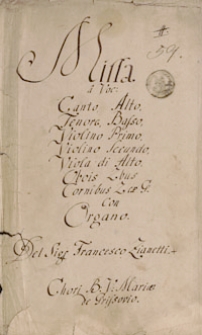 59.
Missa.
à Voc:
Canto, Alto,
Tenore, Basso,
Violino Primo,
Violino Secundo,
Viola di Alto,
Obois 2bus
Cornibus 2 ex G.
Con
Organo.
Del Sigre Francesco Zianetti.
Chori B. V. Mariæ
de Grissovio.